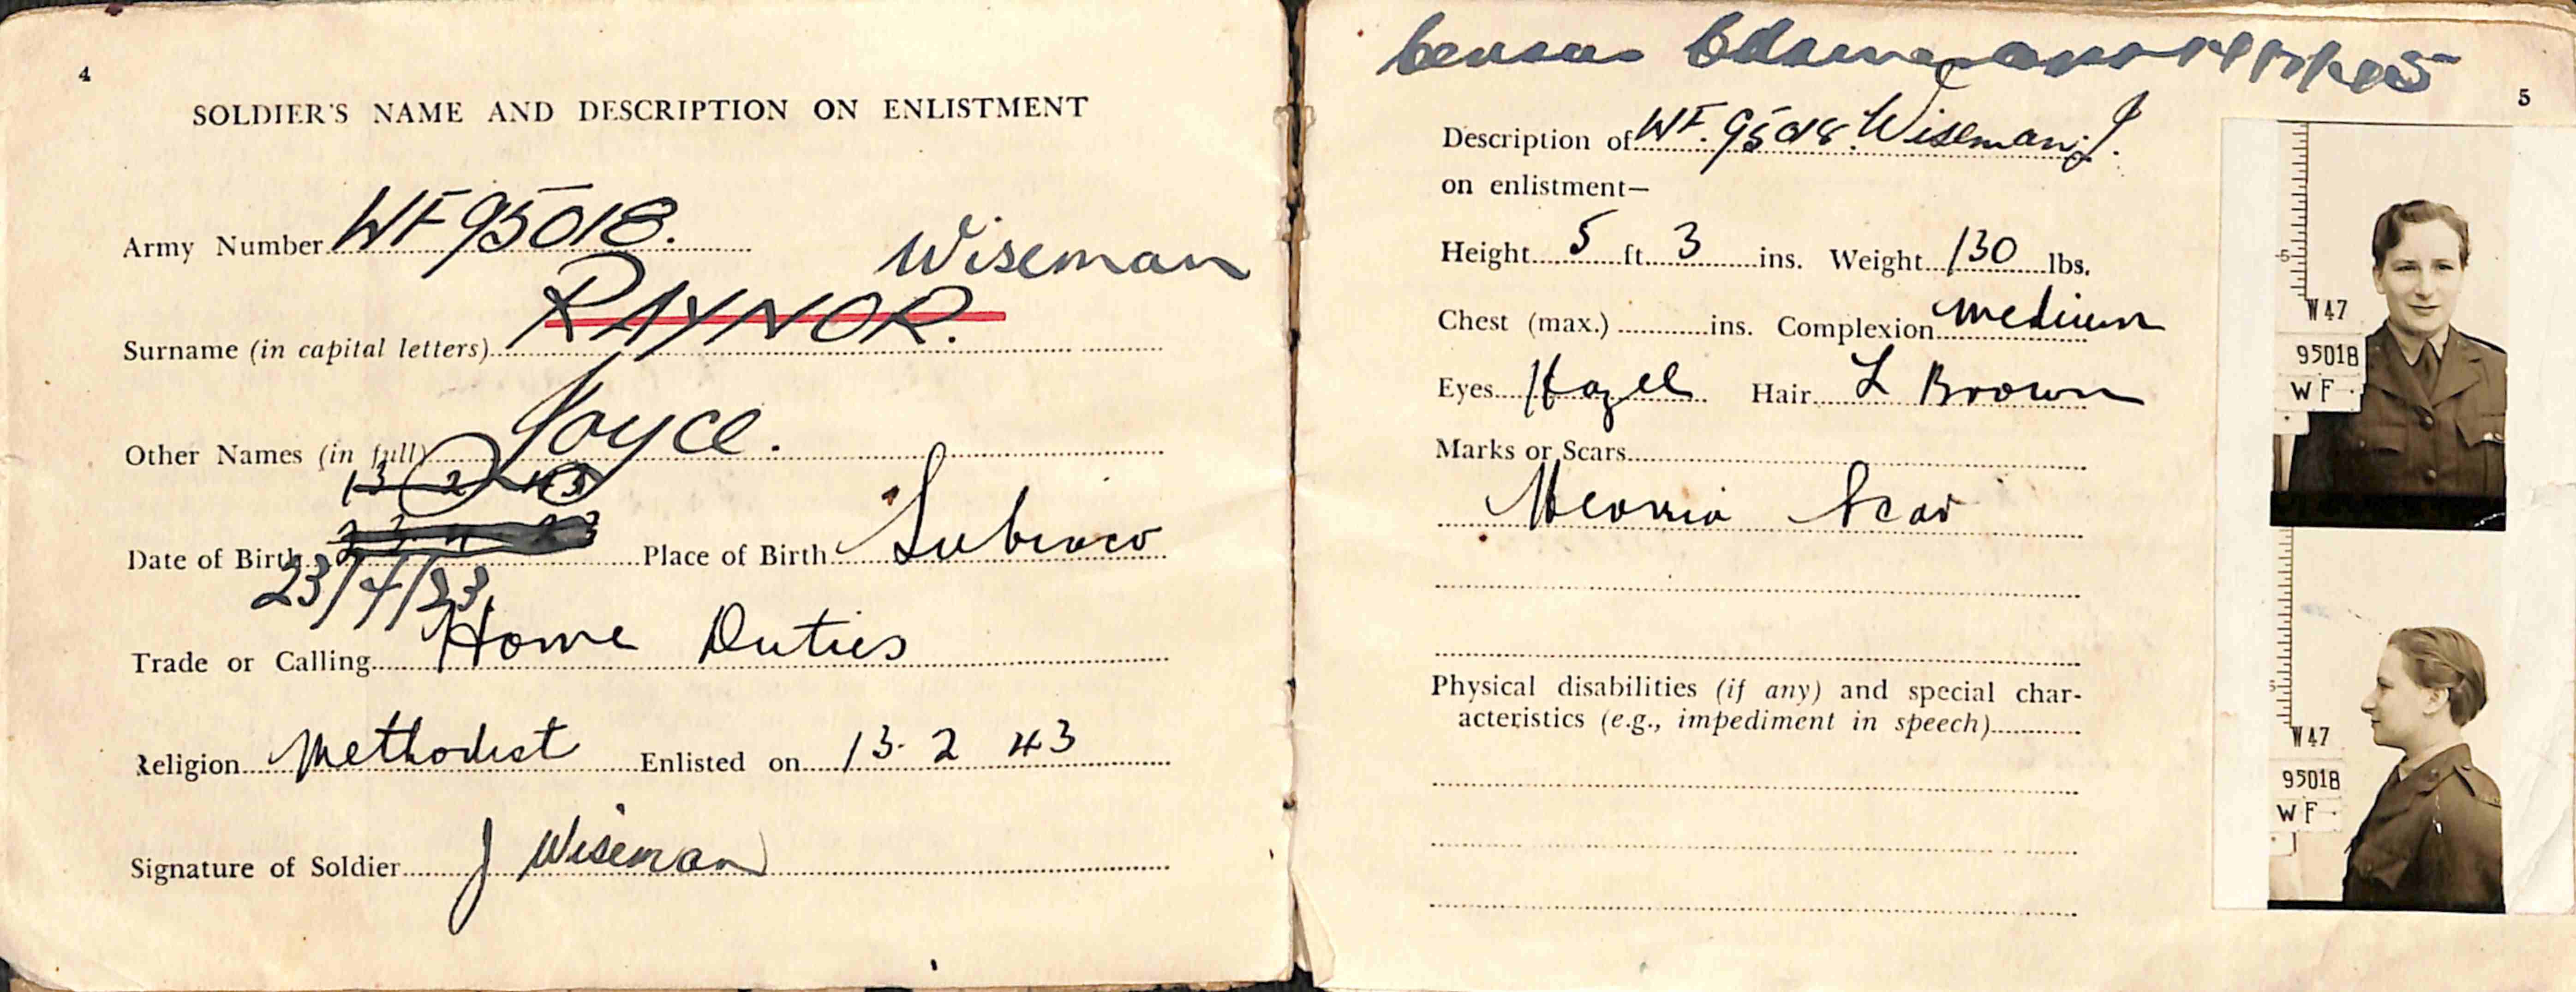 4
SOLDIER'S NAME AND DESCRIPTION ON ENLISTMENT
Army Number WF95018.
Wiseman
Surname (in capital letters) RAYNOR.
Other Names (in full) Joyce.
13 2 43
Date of Birth 23/4/23 Place of Birth Subiaco
Trade or Calling Home Duties
Religion Methodist Enlisted on 13-2 43
Signature of Soldier J Wiseman
Census
5
Description of WF.95018. Wiseman, J.
on enlistment—
Height 5 ft 3 ins. Weight 130 lbs.
Chest (max.) ins. Complexion Medium
Eyes Hazel Hair L Brown
Marks or Scars
Scar
Physical disabilities (if any) and special char-
acteristics (e.g., impediment in speech)
5
W47
95018
WF
5
W47
95018
WF